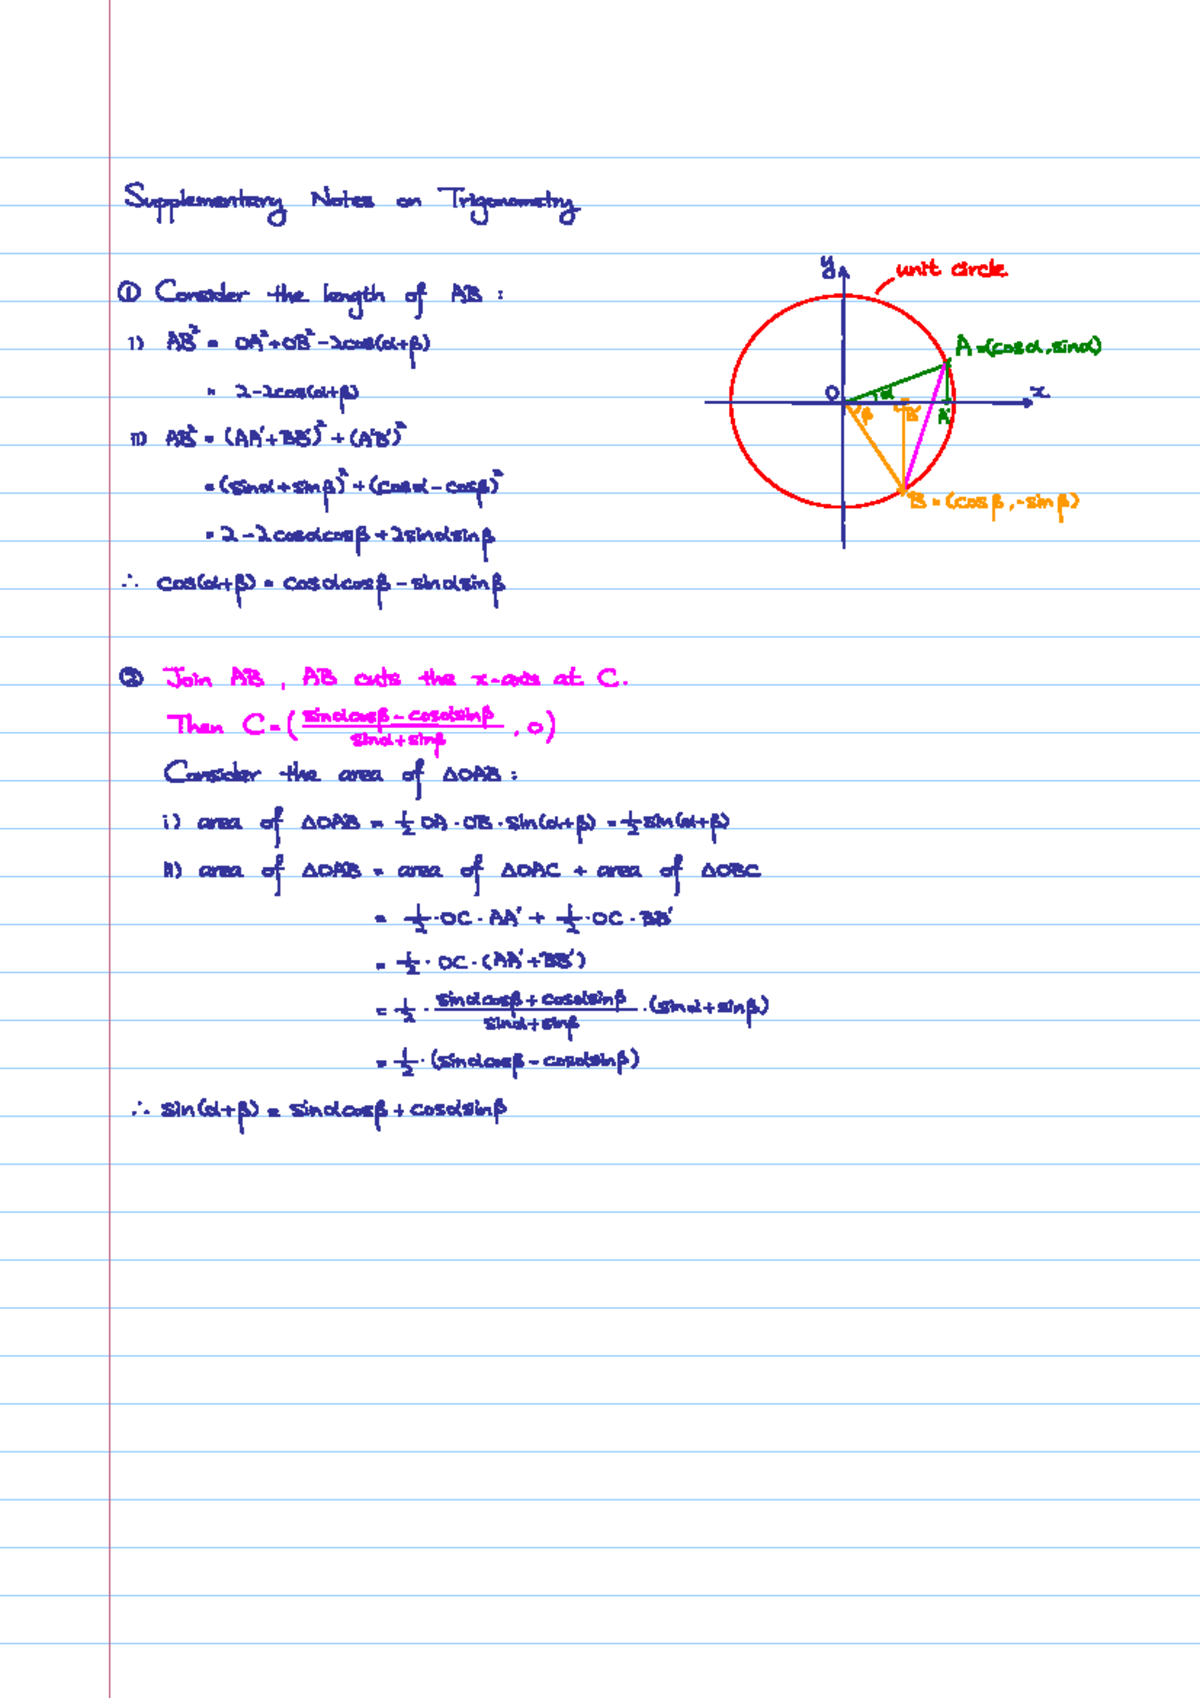 Supplementary Notes on Trigonometry
① Consider the length of AB :
i) AB² = OA²+OB²-2cos(α+β)
= 2-2cos(α+β)
ii) AB² = (AA'+BB')²+(A'B')²
=(sinα+sinβ)²+(cosα-cosβ)²
=2-2cosαcosβ+2sinαsinβ
∴ cos(α+β) = cosαcosβ-sinαsinβ
y
unit circle
A=(cosα,sinα)
O
α
x
β
B'
A'
B=(cosβ,-sinβ)
② Join AB, AB cuts the x-axis at C.
Then C=((sinαcosβ-cosαsinβ)/(sinα+sinβ), 0)
Consider the area of ΔOAB :
i) area of ΔOAB = 1/2 OA·OB·sin(α+β) = 1/2 sin(α+β)
ii) area of ΔOAB = area of ΔOAC + area of ΔOBC
= 1/2·OC·AA' + 1/2·OC·BB'
= 1/2·OC·(AA'+BB')
= 1/2·(sinαcosβ+cosαsinβ)/(sinα+sinβ)·(sinα+sinβ)
= 1/2·(sinαcosβ-cosαsinβ)
∴ sin(α+β) = sinαcosβ+cosαsinβ